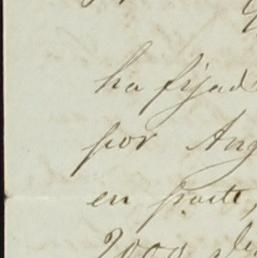 ha fijad
por Ang
en parte,
2000